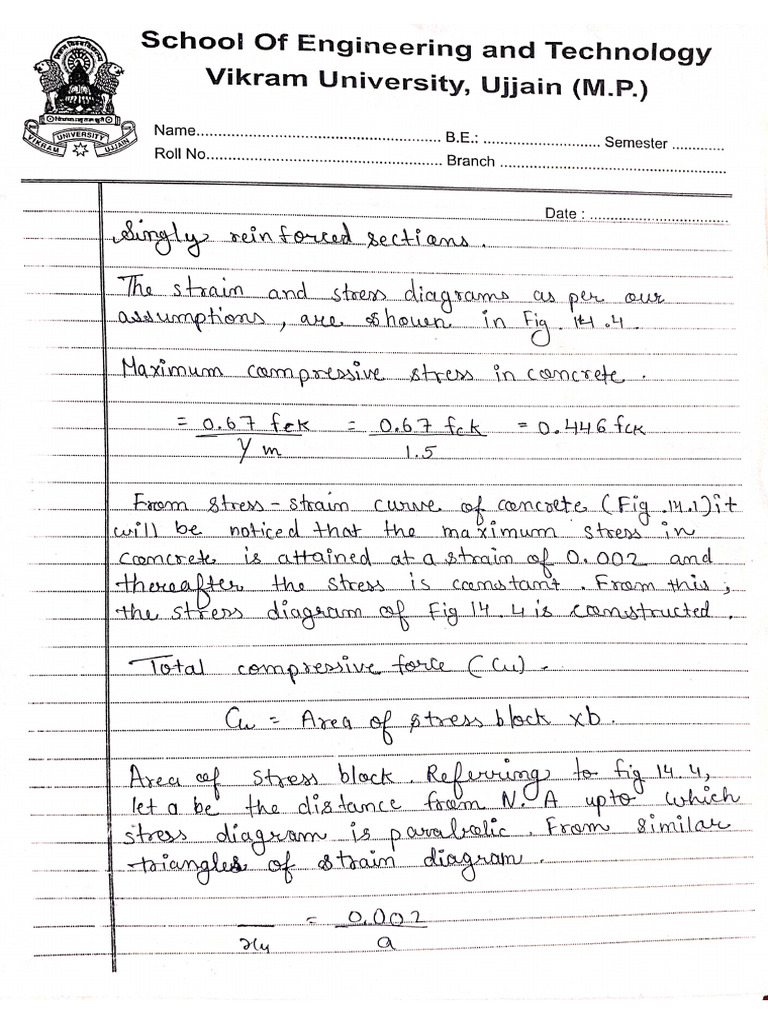 School Of Engineering and Technology
Vikram University, Ujjain (M.P.)
VIKRAM UNIVERSITY UJJAIN
Name.................................................... B.E.: ........................... Semester ............
Roll No.................................................... Branch ....................................................
Date : ................................
Singly reinforced sections.
The strain and stress diagrams as per our
assumptions, are shown in Fig. 14.4.
Maximum compressive stress in concrete.
= 0.67 fck / γm = 0.67 fck / 1.5 = 0.446 fck
From stress-strain curve of concrete (Fig.14.1) it
will be noticed that the maximum stress in
concrete is attained at a strain of 0.002 and
thereafter the stress is constant. From this,
the stress diagram of Fig 14.4 is constructed.
Total compressive force (Cu).
Cu = Area of stress block xb.
Area of stress block. Referring to fig 14.4,
let a be the distance from N.A upto which
stress diagram is parabolic. From similar
triangles of strain diagram.
/ xu = 0.002 / a